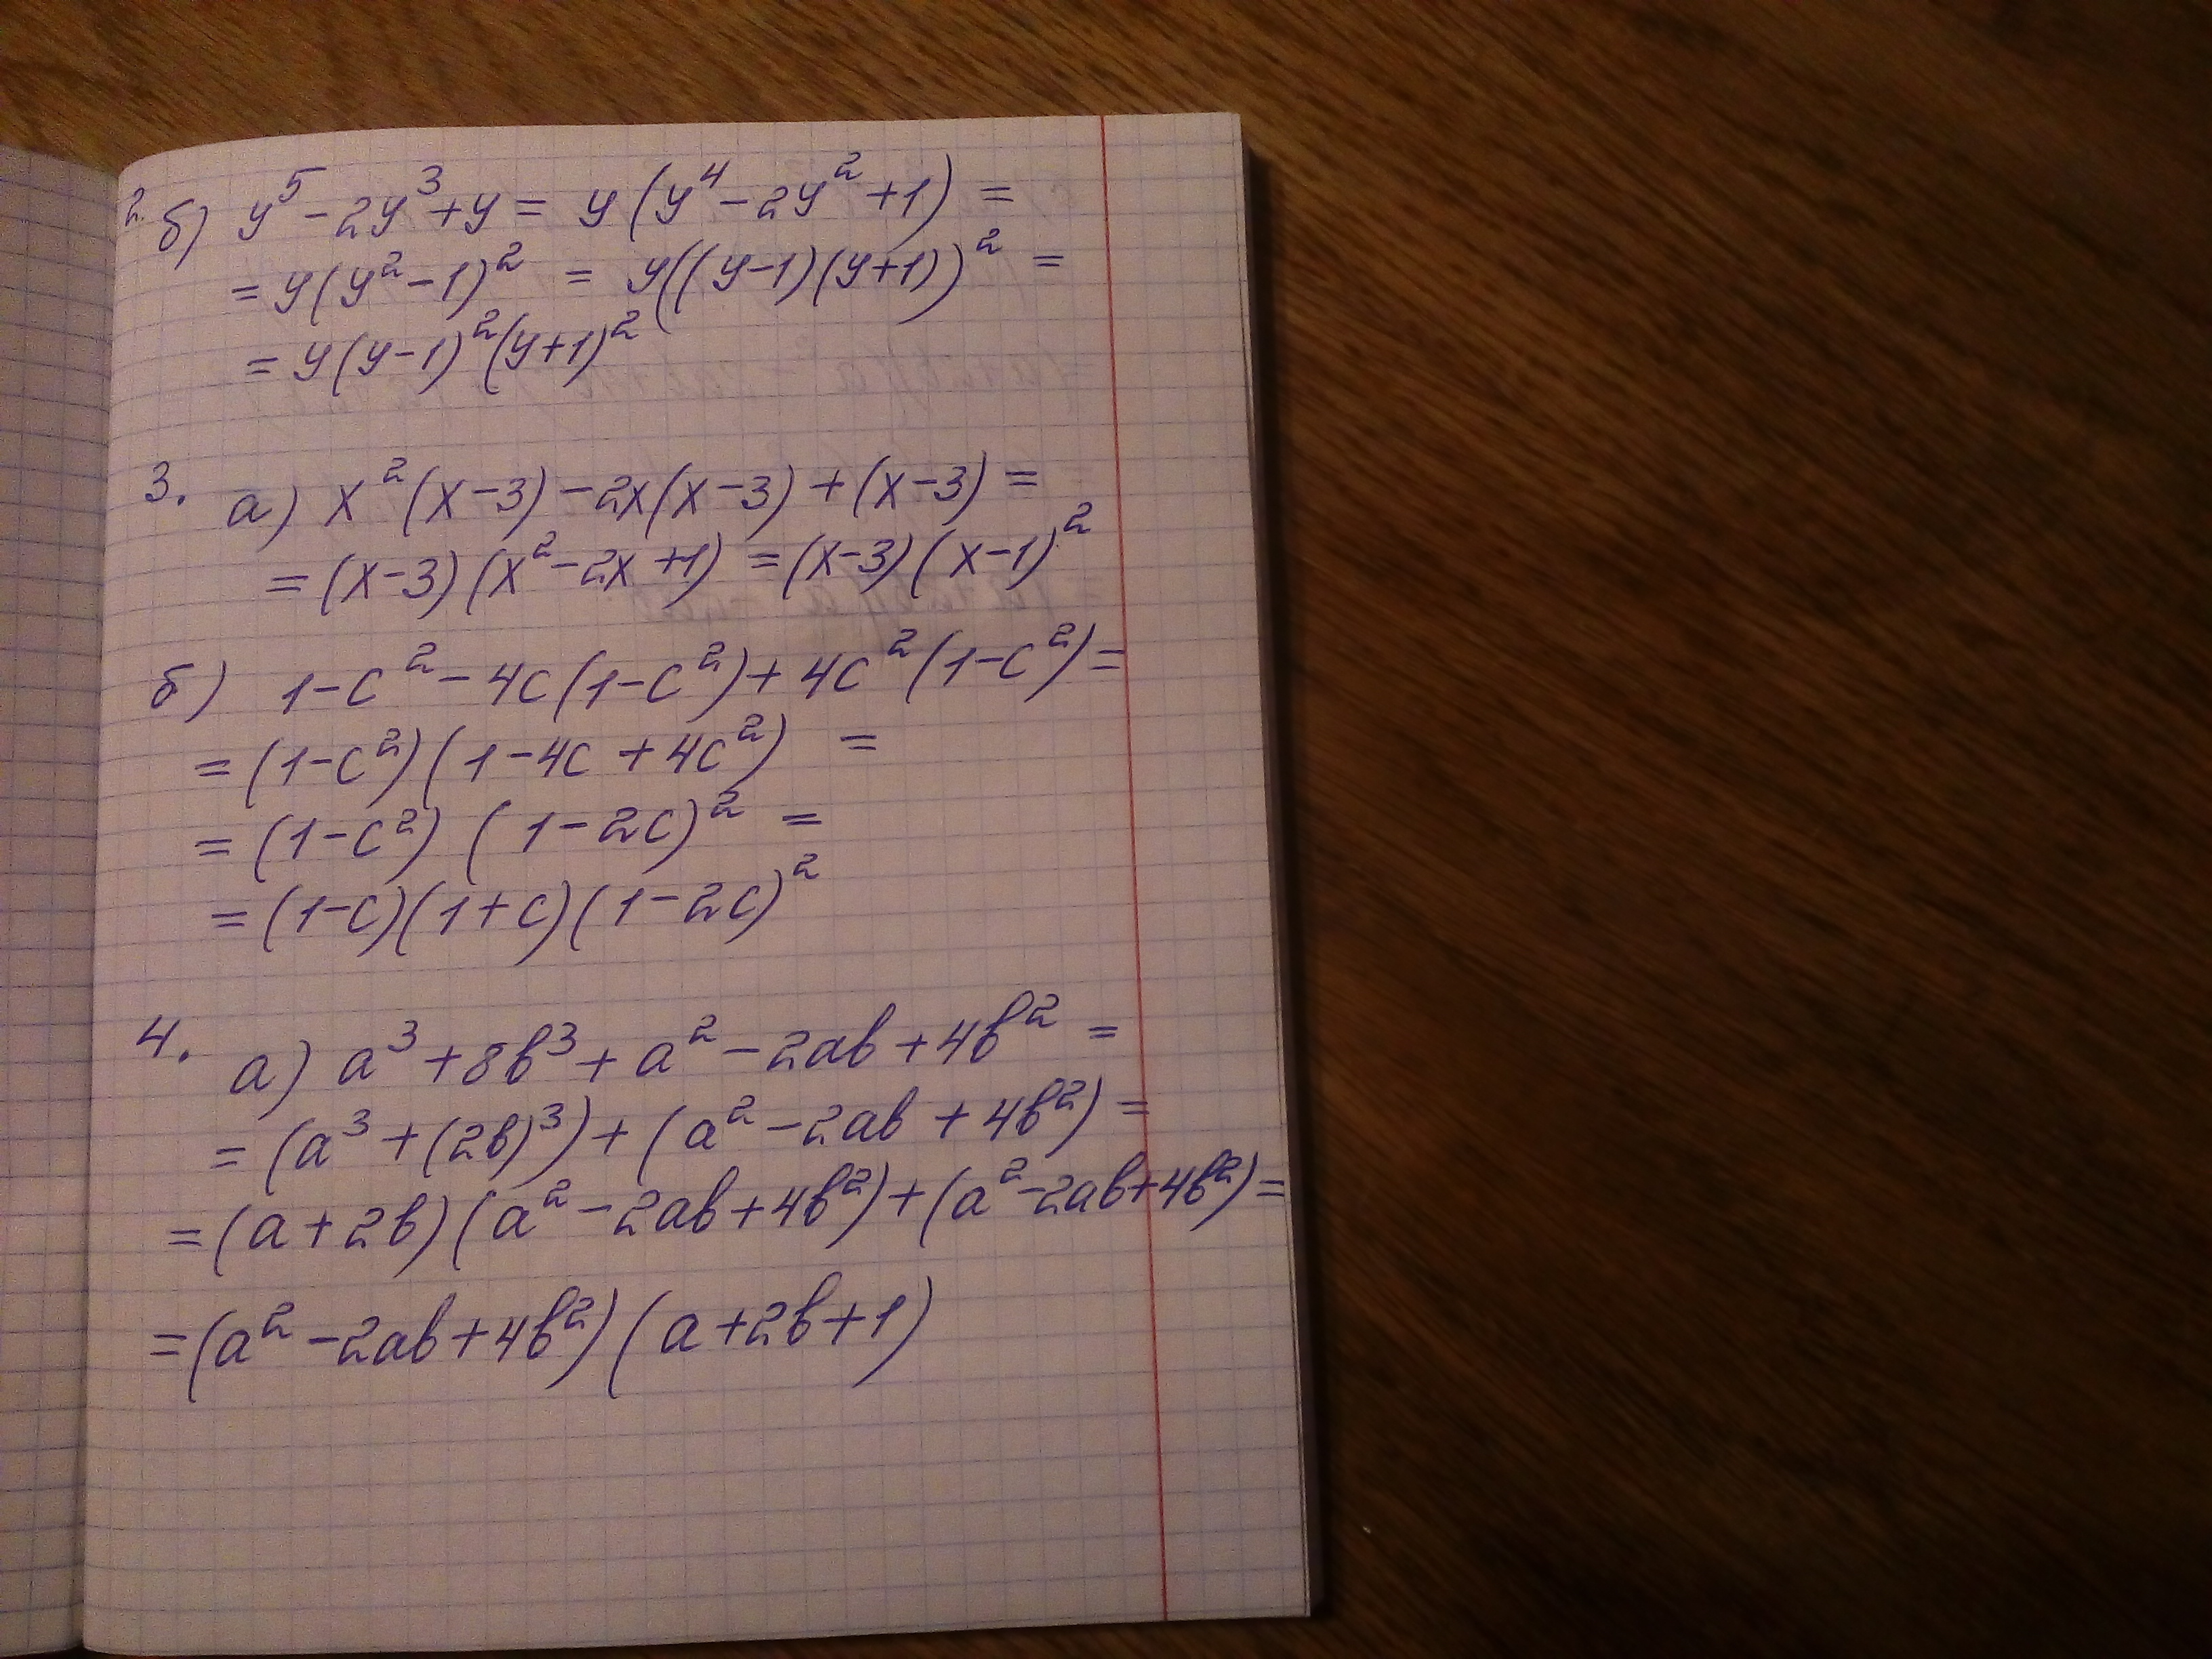 2. б) y⁵ - 2y³ + y = y(y⁴ - 2y² + 1) =
= y(y² - 1)² = y((y-1)(y+1))² =
= y(y-1)²(y+1)²
3. а) x²(x-3) - 2x(x-3) + (x-3) =
= (x-3)(x² - 2x + 1) = (x-3)(x-1)²
б) 1 - c² - 4c(1-c²) + 4c²(1-c²) =
= (1-c²)(1 - 4c + 4c²) =
= (1-c²)(1-2c)² =
= (1-c)(1+c)(1-2c)²
4. а) a³ + 8b³ + a² - 2ab + 4b² =
= (a³ + (2b)³) + (a² - 2ab + 4b²) =
= (a + 2b)(a² - 2ab + 4b²) + (a² - 2ab + 4b²) =
= (a² - 2ab + 4b²)(a + 2b + 1)